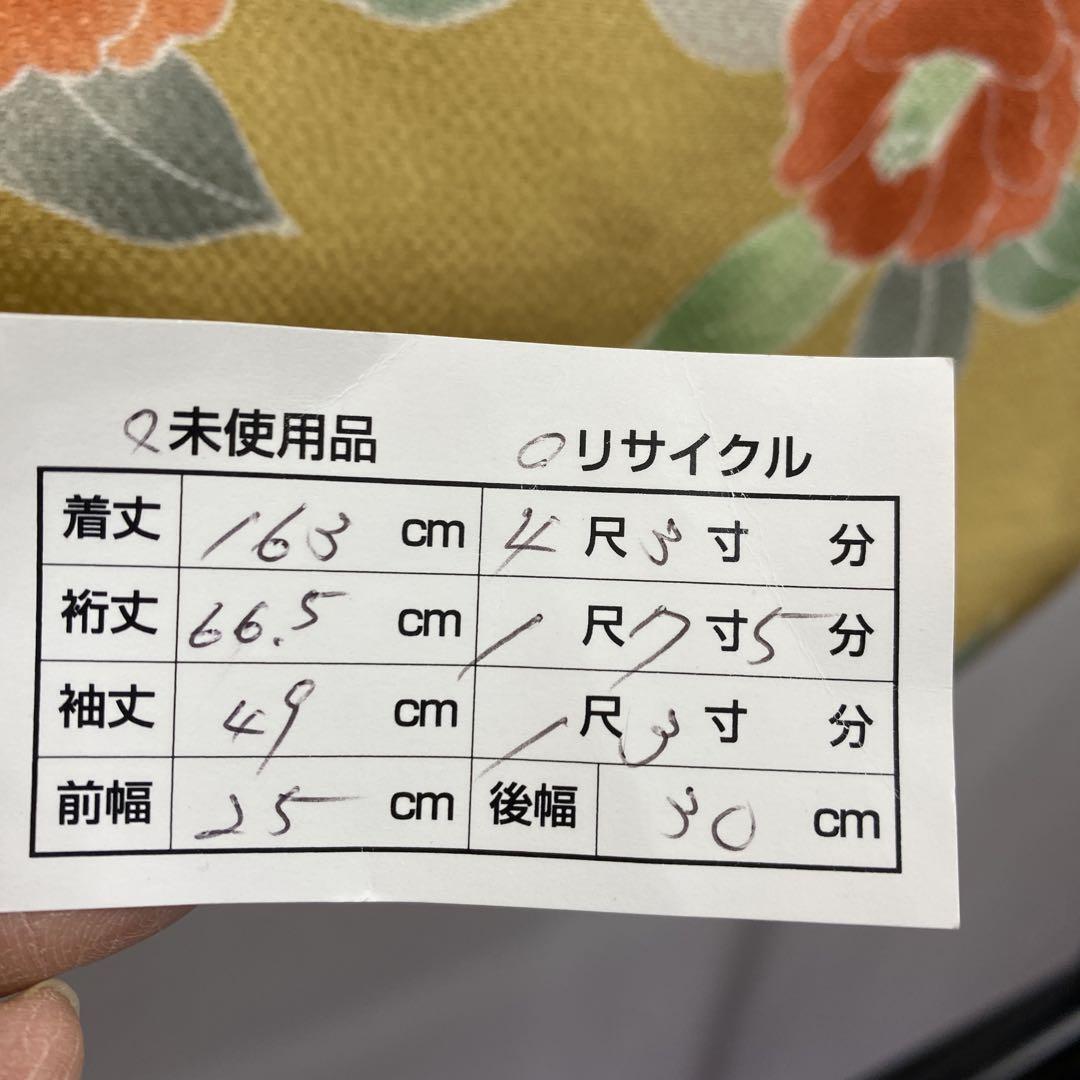 ○未使用品 ○リサイクル
着丈 163 cm 4尺3寸 分
裄丈 66.5 cm 1尺7寸5分
袖丈 49 cm 1尺3寸 分
前幅 25 cm 後幅 30 cm